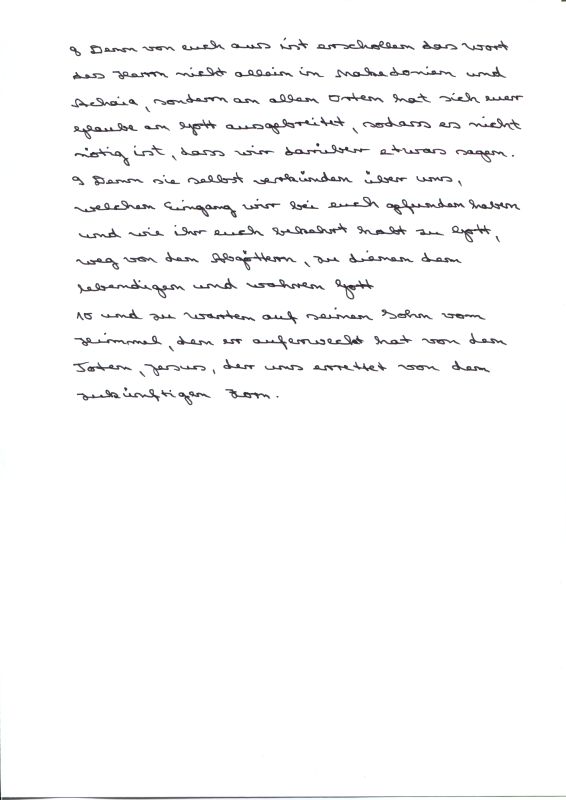 8 Denn von euch aus ist erschollen das Wort
des Herrn nicht allein in Makedonien und
Achaia, sondern an allen Orten hat sich euer
Glaube an Gott ausgebreitet, sodass es nicht
nötig ist, dass wir darüber etwas sagen.
9 Denn sie selbst verkünden über uns,
welchen Eingang wir bei euch gefunden haben
und wie ihr euch bekehrt habt zu Gott,
weg von den Abgöttern, zu dienen dem
lebendigen und wahren Gott
10 und zu warten auf seinen Sohn vom
Himmel, den er auferweckt hat von den
Toten, Jesus, der uns errettet von dem
zukünftigen Zorn.